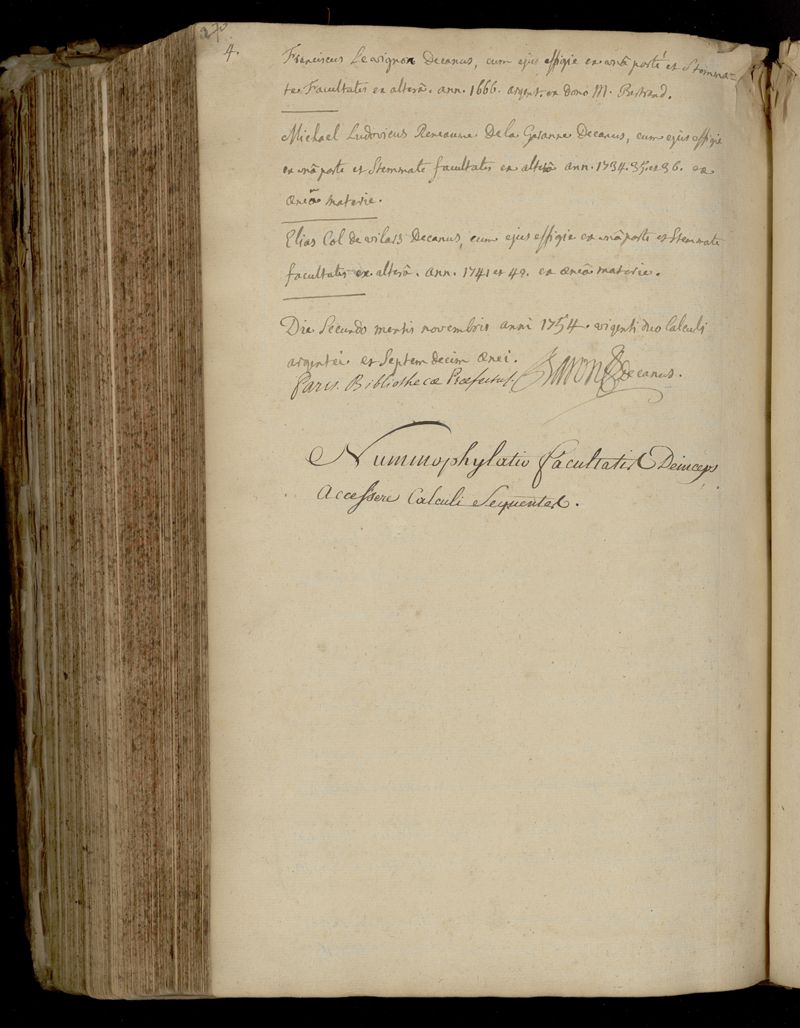 270
4.
Franciscus Le vignon Decanus, cum ejus effigie ex unâ parte et Stemma-
te Facultatis ex alterâ. ann. 1666. argent. ex dono M. Bertrand.
Michael Ludovicus Reneaume De la Garanne Decanus, cum ejus effigie
ex unâ parte et Stemmate facultatis ex alterâ ann. 1734. 35. et 36. ex
æneâ materie.
Elias Col de vilars Decanus, cum ejus effigie ex unâ parte et Stemmate
facultatis ex alterâ. ann. 1741 et 42. ex æneâ materie.
Die Secundo mensis novembris anni 1754. viginti duo Calculi
argentei et Septem decim ænei.
Paris. Bibliothecæ Præfectus. Baron Decanus.
Nummophylatio facultatis Deinceps
Accessere Calculi Sequentes.